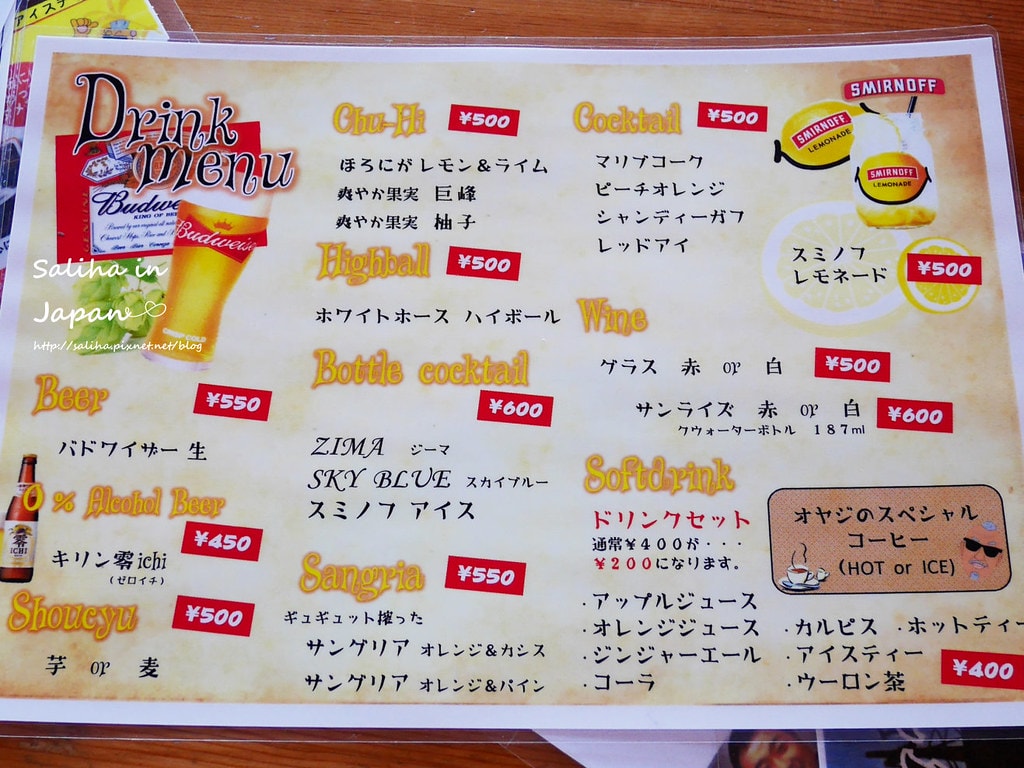 アイスティ
Drink
menu
Budweiser
KING OF BEERS
Budweiser
Saliha in
Japan
http://saliha.pixnet.net/blog
Beer
¥550
バドワイザー 生
0 % Alcohol Beer
¥450
キリン零ichi
(ゼロイチ)
零
ICHI
Shoucyu
¥500
芋 or 麦
Chu-Hi
¥500
ほろにが レモン&ライム
爽やか果実 巨峰
爽やか果実 柚子
Highball
¥500
ホワイトホース ハイボール
Bottle cocktail
¥600
ZIMA ジーマ
SKY BLUE スカイブルー
スミノフ アイス
Sangria
¥550
ギュギュット搾った
サングリア オレンジ&カシス
サングリア オレンジ&パイン
Cocktail
¥500
マリブコーク
ピーチオレンジ
シャンディーガフ
レッドアイ
SMIRNOFF
SMIRNOFF
LEMONADE
SMIRNOFF
LEMONADE
スミノフ
レモネード
¥500
Wine
グラス 赤 or 白
¥500
サンライズ 赤 or 白
¥600
クウォーターボトル 187ml
Softdrink
ドリンクセット
通常¥400が・・・
¥200になります。
オヤジのスペシャル
コーヒー
(HOT or ICE)
・アップルジュース
・オレンジジュース
・ジンジャーエール
・コーラ
・カルピス ・ホットティー
・アイスティー
・ウーロン茶
¥400